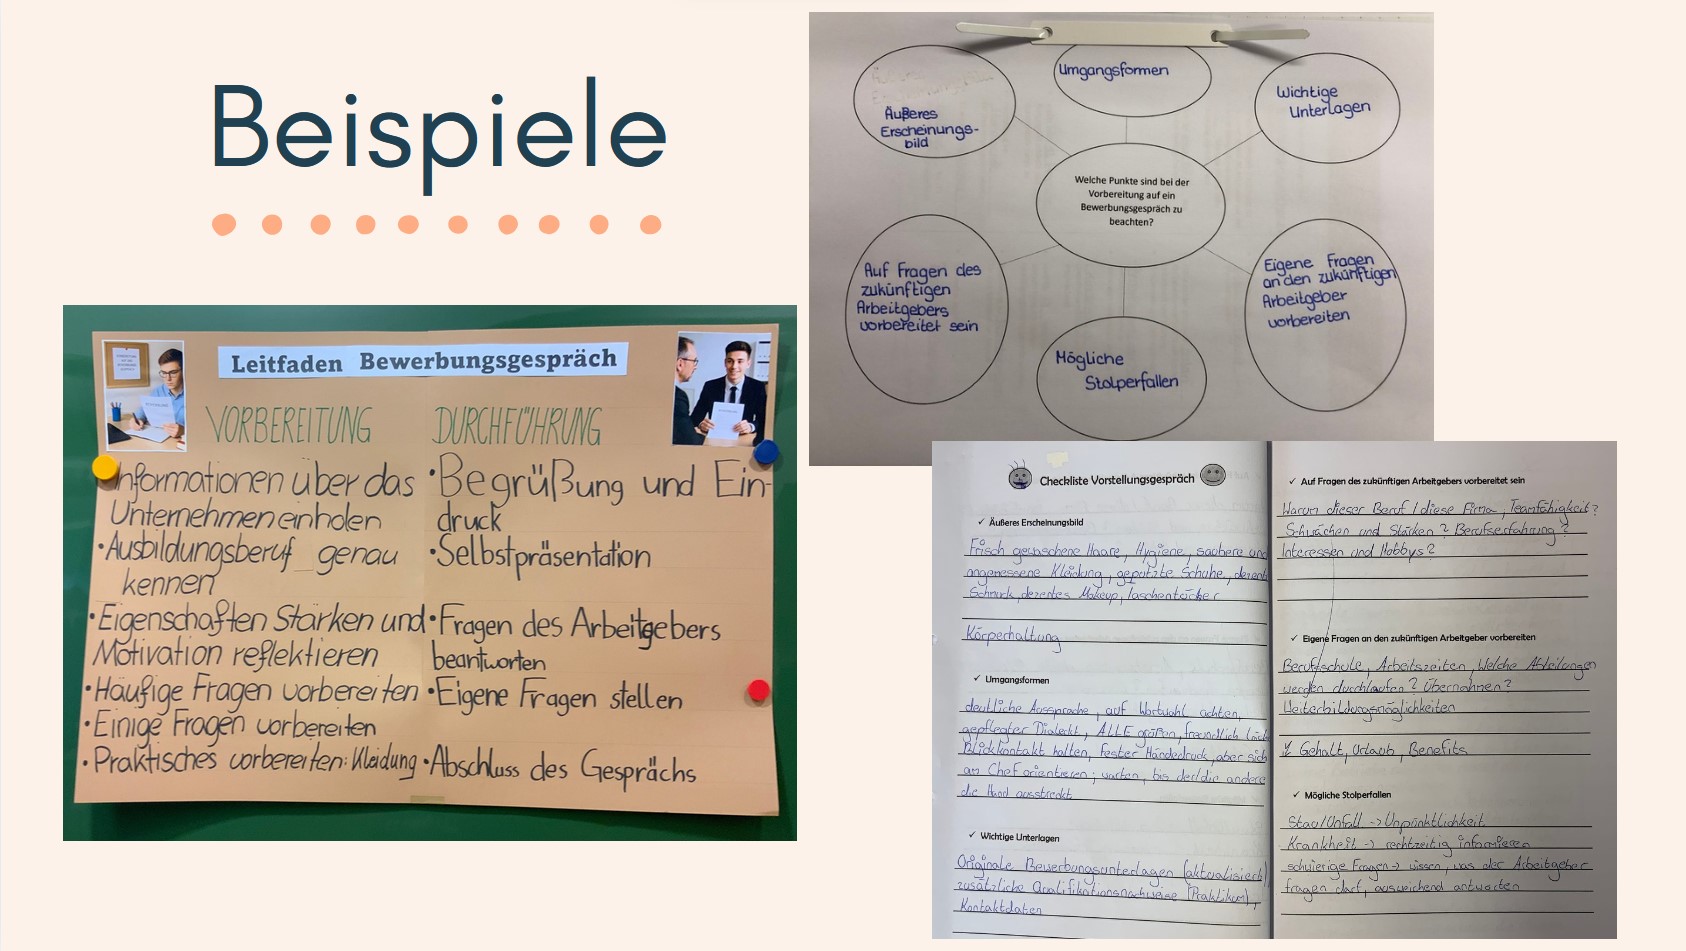 Beispiele
Leitfaden Bewerbungsgespräch
VORBEREITUNG
Informationen über das
Unternehmen einholen
•Ausbildungsberuf genau
kennen
•Eigenschaften Stärken und
Motivation reflektieren
•Häufige Fragen vorbereiten
•Einige Fragen vorbereiten
•Praktisches vorbereiten: Kleidung
DURCHFÜHRUNG
•Begrüßung und Ein-
druck
•Selbstpräsentation
•Fragen des Arbeitgebers
beantworten
•Eigene Fragen stellen
•Abschluss des Gesprächs
Äußeres
Erscheinungs-
bild
Umgangsformen
Wichtige
Unterlagen
Welche Punkte sind bei der
Vorbereitung auf ein
Bewerbungsgespräch zu
beachten?
Auf Fragen des
zukünftigen
Arbeitgebers
vorbereitet sein
Mögliche
Stolperfallen
Eigene Fragen
an den zukünftigen
Arbeitgeber
vorbereiten
Checkliste Vorstellungsgespräch
✓ Äußeres Erscheinungsbild
Frisch gewaschene Haare, Hygiene, saubere und
angemessene Kleidung, geputzte Schuhe, dezent
Schmuck, dezentes Makeup, Taschentücher
Körperhaltung
✓ Umgangsformen
deutliche Aussprache, auf Wortwahl achten,
gepflegter Dialekt, ALLE grüßen, freundlich
Blickkontakt halten, fester Händedruck, aber sich
am Chef orientieren; warten, bis der/die andere
die Hand ausstreckt
✓ Wichtige Unterlagen
Originale Bewerbungsunterlagen (aktualisiert)
zusätzliche Qualifikationsnachweise (Praktikum),
Kontaktdaten
✓ Auf Fragen des zukünftigen Arbeitgebers vorbereitet sein
Warum dieser Beruf / diese Firma, Teamfähigkeit?
Schwächen und Stärken? Berufserfahrung?
Interessen und Hobbys?
✓ Eigene Fragen an den zukünftigen Arbeitgeber vorbereiten
Berufsschule, Arbeitszeiten, Welche Abteilungen
werden durchlaufen? Übernahmen?
Weiterbildungsmöglichkeiten
Gehalt, Urlaub, Benefits
✓ Mögliche Stolperfallen
Stau/Unfall -> Unpünktlichkeit
Krankheit -> rechtzeitig informieren
schwierige Fragen -> wissen, was der Arbeitgeber
fragen darf, ausweichend antworten